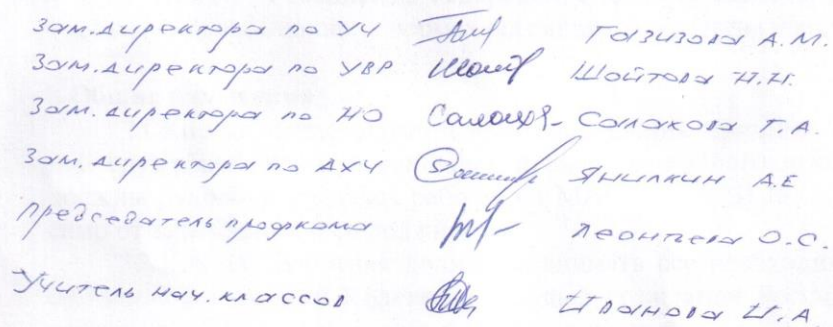 Зам.директора по УЧ Газизова А.М.
Зам.директора по УВР Шойтова Н.Н.
Зам.директора по НО Салакова Т.А.
Зам.директора по АХЧ Янилкин А.Е
Председатель профкома Леонтьева О.С.
Учитель нач.классов Иванова И.А